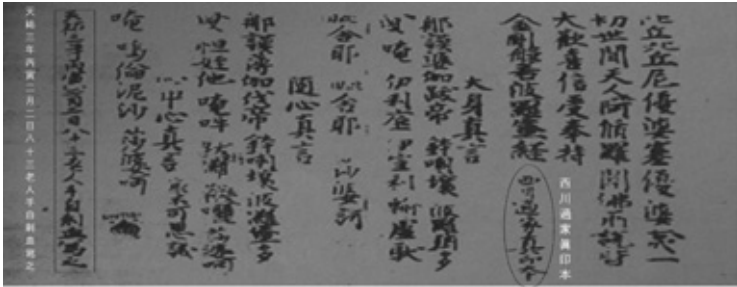 比丘比丘尼優婆塞優婆夷一
切世間天人阿脩羅聞佛所說皆
大歡喜信受奉持
金剛般若波羅蜜經 西川過家真印本
西川過家眞印本
大身真言
那謨婆伽跋帝 鉢喇壤 波羅弭多
曳 唵 伊利底 伊室利 輸盧馱
毗舍耶 毗舍耶 莎婆訶
隨心真言
那謨薄伽伐帝 鉢喇壤 波羅蜜多
曳 怛姪他 唵 吽 莎婆訶
心中心真言 不可思議
唵 嗚倫泥沙 莎婆訶
天祐三年丙寅二月二日八十三老人手自刺血寫之
天祐三年丙寅二月二日八十三老人手自刺血寫之